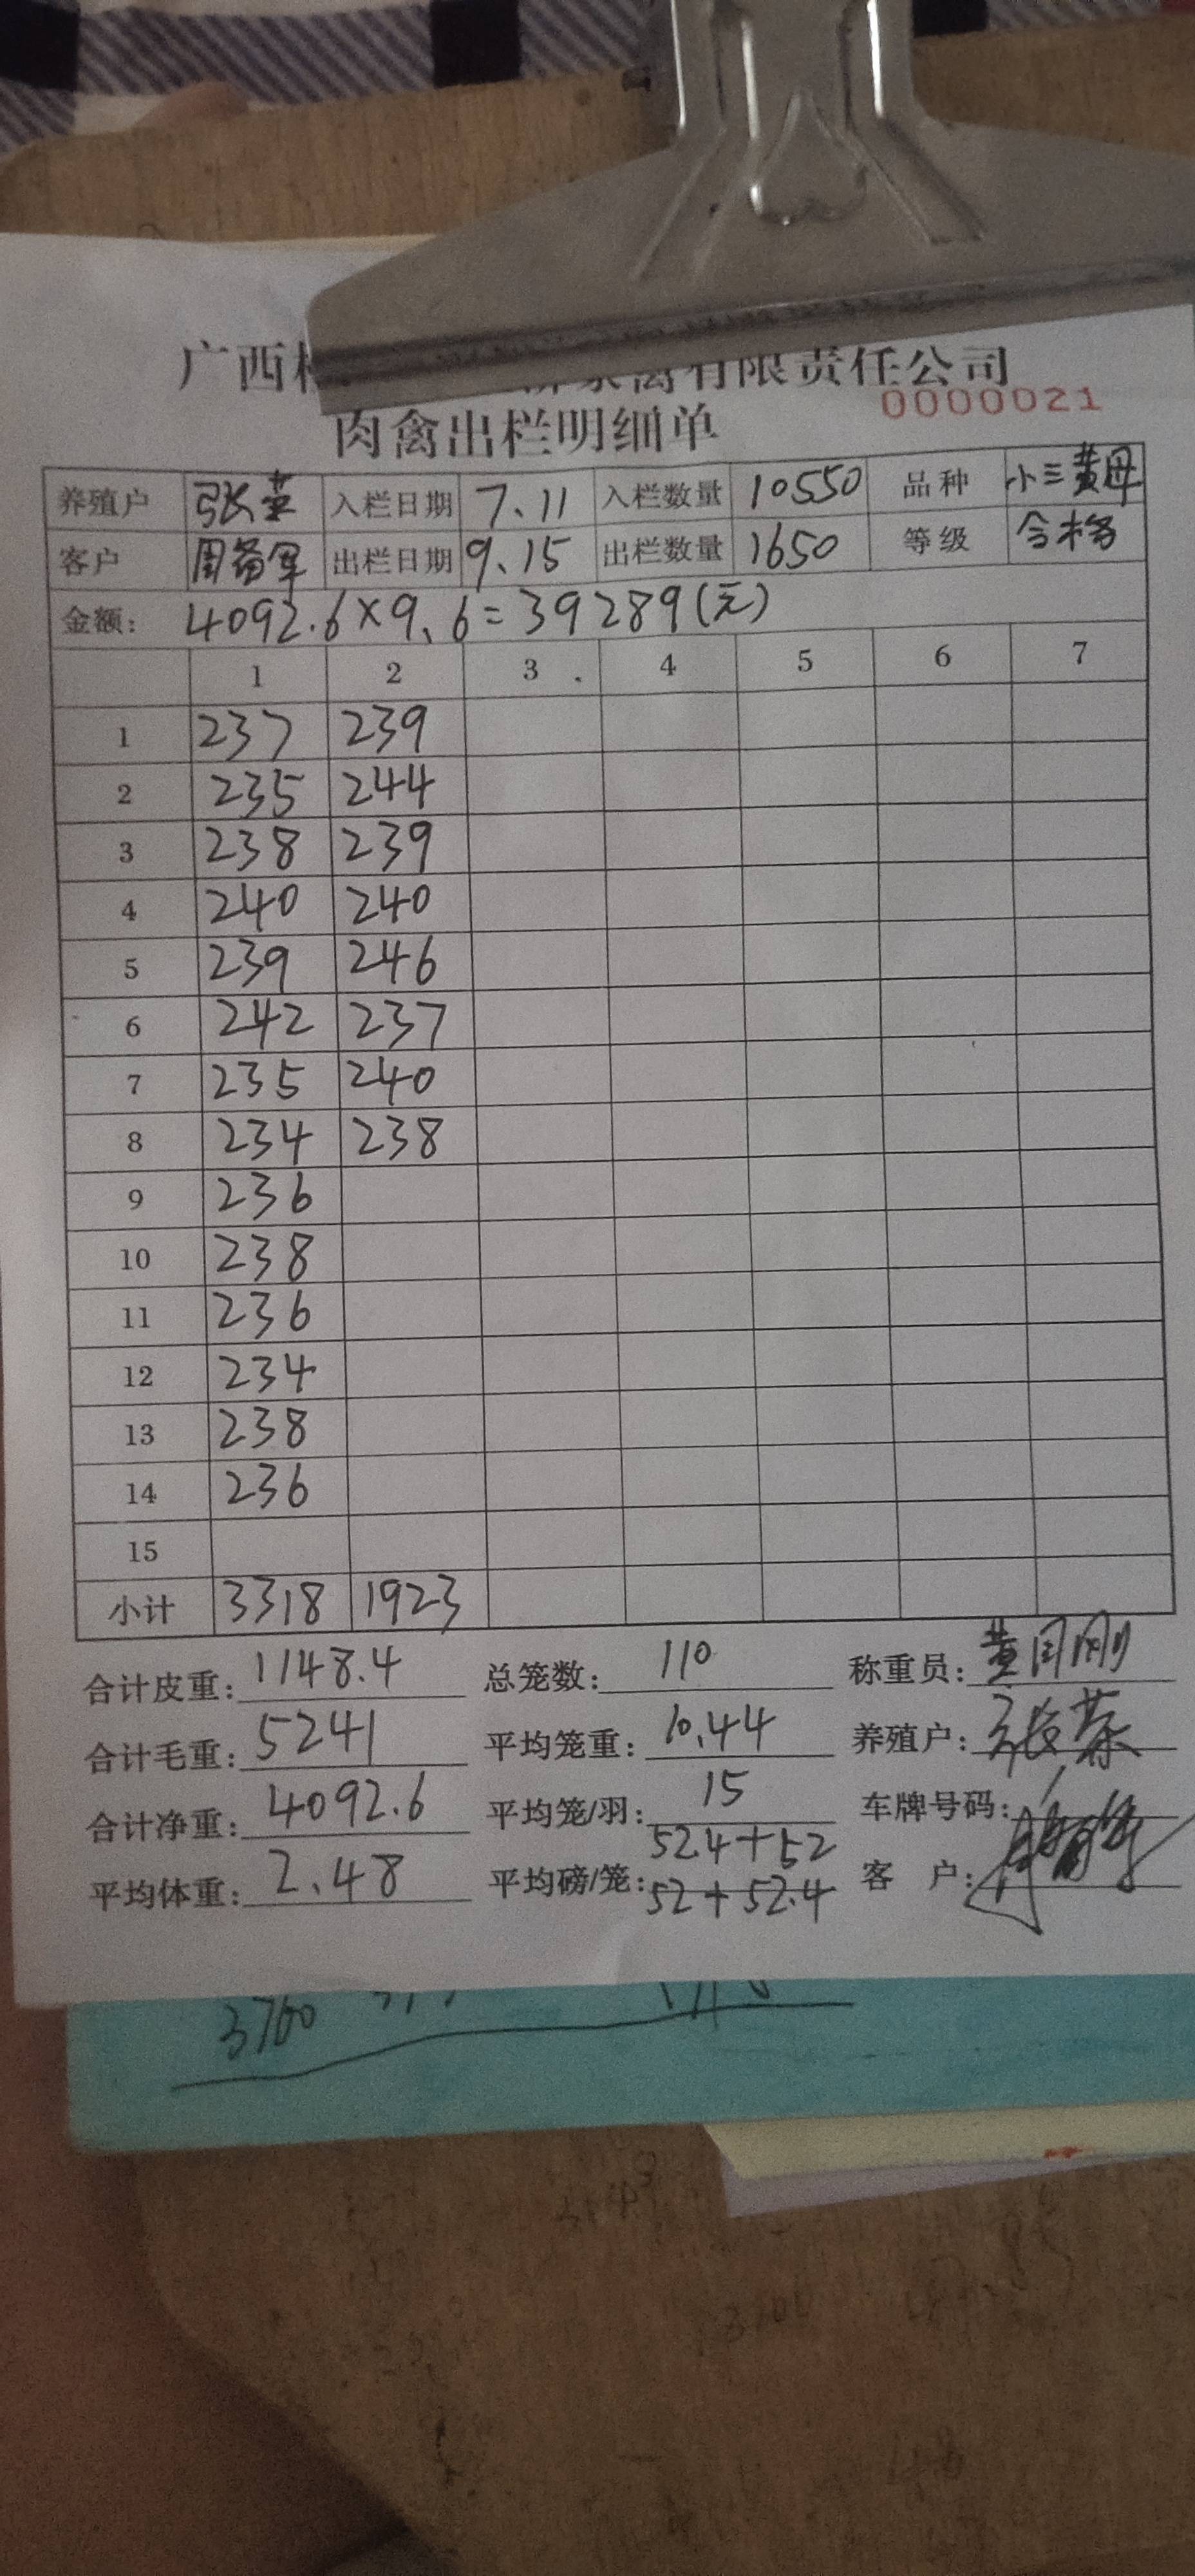 广西 家禽有限责任公司
0000021
肉禽出栏明细单
养殖户 张荣 入栏日期 7.11 入栏数量 10550 品种 小三黄母
客户 出栏日期 9.15 出栏数量 1650 等级 合格
金额: 4092.6×9.6=39289(元)
1 2 3 4 5 6 7
1 237 239
2 235 244
3 238 239
4 240 240
5 239 246
6 242 237
7 235 240
8 234 238
9 236
10 238
11 236
12 234
13 238
14 236
15
小计 3318 1923
合计皮重: 1148.4 总笼数: 110 称重员: 黄国刚
合计毛重: 5241 平均笼重: 10.44 养殖户: 张荣
合计净重: 4092.6 平均笼/羽: 15 车牌号码:
平均体重: 2.48 平均磅/笼: 52.4+52 客 户:
52+52.4
3760